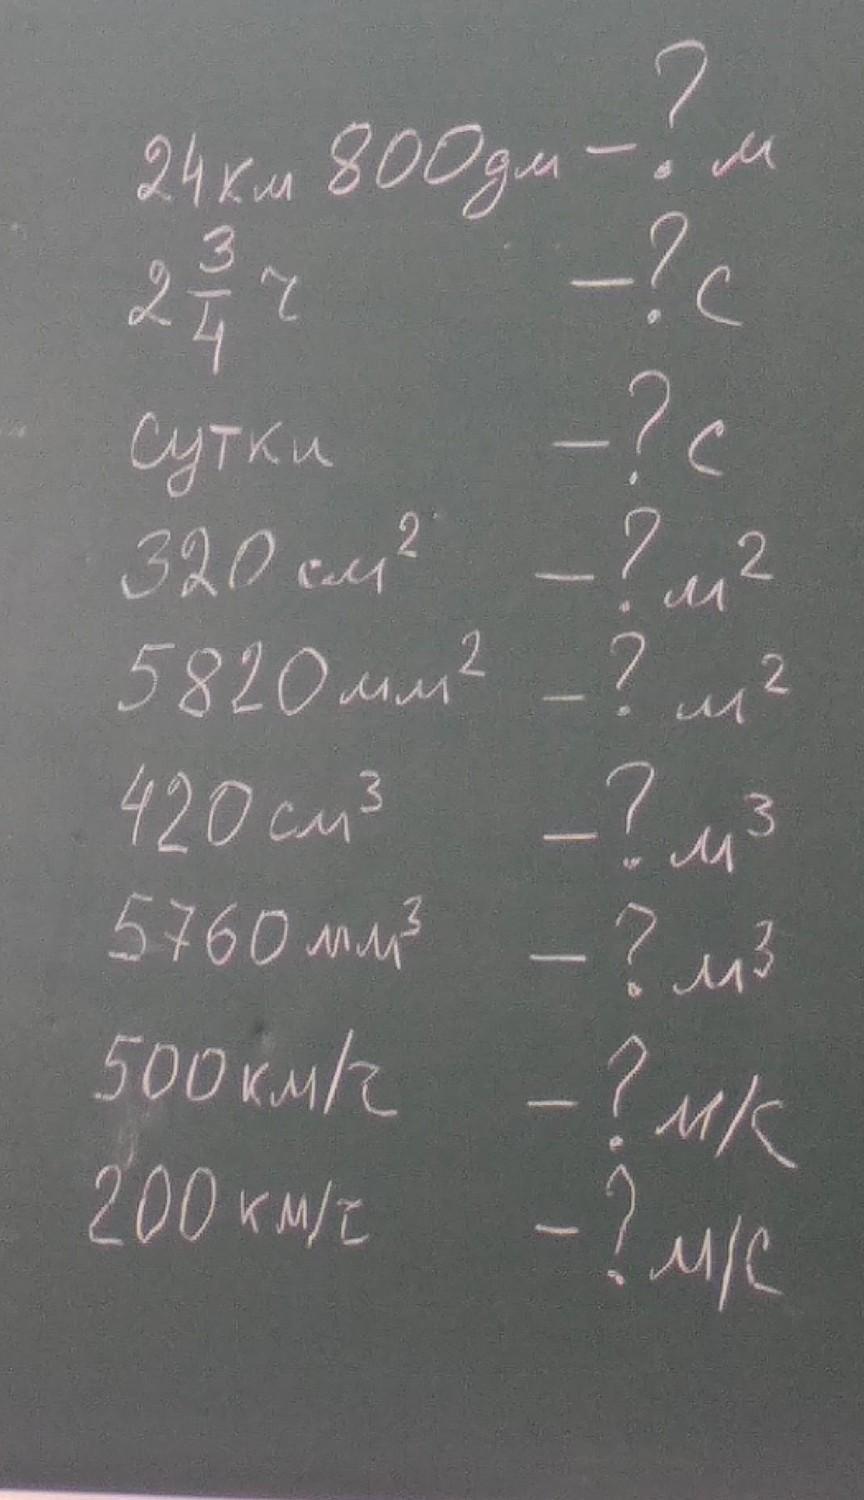 24км 800дм – ? м
2 3/4 ч – ? с
сутки – ? с
320 см² – ? м²
5820 мм² – ? м²
420 см³ – ? м³
5760 мм³ – ? м³
500 км/ч – ? м/с
200 км/ч – ? м/с